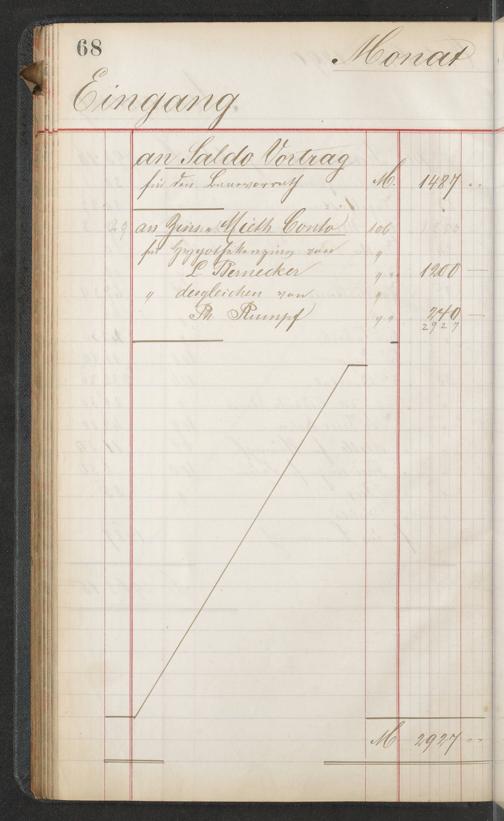 68
Monat
Eingang.
an Saldo Vortrag
für den Baarvorrath M. 1487 "
29 an Zins u. Mieth Conto 106
für Hypothekenzins von "
L. Bernecker " " 1200 —
" desgleichen von "
Ph. Rumpf " " 240 —
2927
M 2927 "